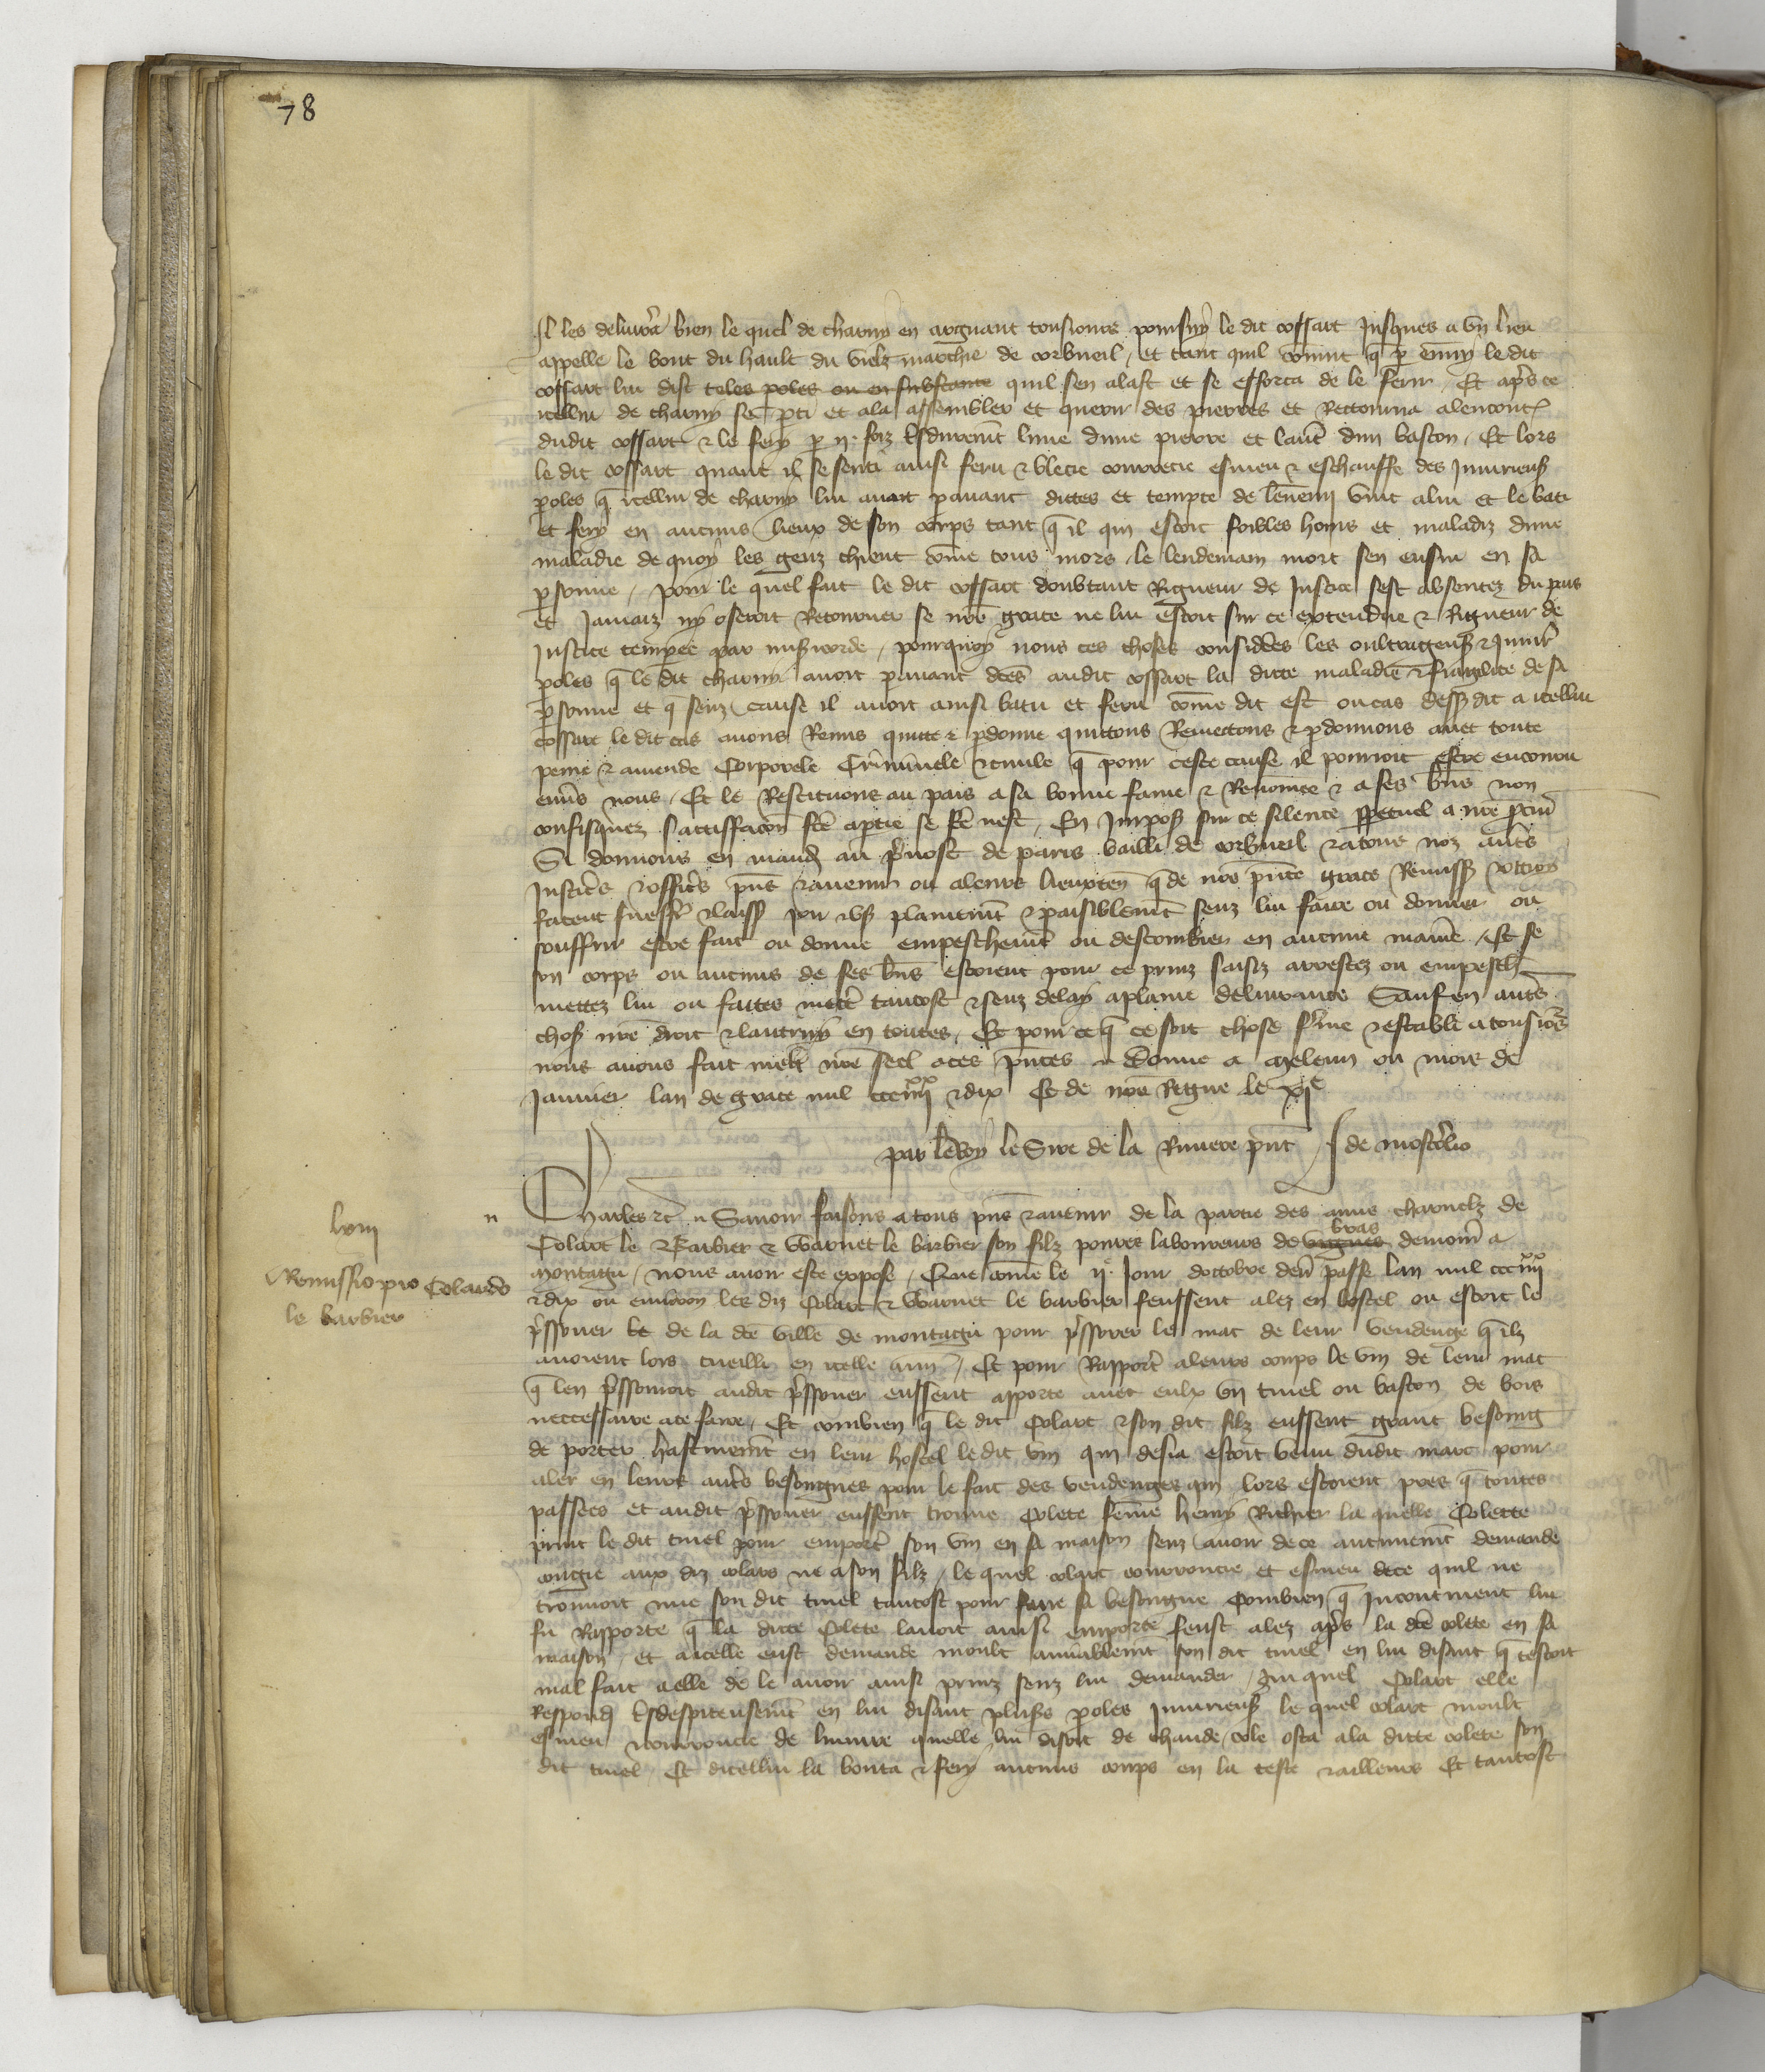 78
Il les delivra bien le quel de charny en arguant tousiours poursuy le dit cossart jusques a un lieu
appelle le bout du hault du vielz marchie de corbueil, et tant quil convint q̃ p̱ ennuy le dit
cossart lui dist teles poles ou en substance quil sen alast et se efforca de le ferir, Et ap̃s ce
icellui de charny sen p̱ti et ala assembler et querir des pierres et Retourna alencont̃
dudit cossart ⁊ le fery p̱ ij. foiz lune dune pierre et laut̃ dun baston, Et lors
le dit cossart quant il se senti ainsi feru ⁊ blecie courrecie esmeu ⁊ eschauffe des Jniurieus̃
p̱oles q̃ icellui de charny lui avoit p̱avant dittes et tempte de lennemi vint alui et le bati
et fery en aucuns lieux de son corps tant q̃ il qui estoit foibles homs et maladiz dune
maladie de quoy les genz chieent com̃e tous mors, le lendemain mort sen ensui en sa
p̱sonne, pour le quel fait le dit cossart doubtant Rigueur de Justice sest absentez du pais
et Jamaiz ny oseroit Retourner se nr̃e grace ne lui estoit sur ce extendue ⁊ Rigueur de
Justice tempee par mis̃icorde, pourquoy nous ces choses considr̃es les oultrageus̃ ⁊ Jniur̃
p̱oles q̃ le dit charny avoit p̱avant dc̃es audit cossart la ditte maladie ⁊ fragilite de sa
p̱sonne et q̃ senz cause il avoit ainsi batu et feru com̃e dit est ou cas dess̃ dit a icellui
cossart le dit cas avons Remis quitte ⁊ p̱donne quittons Remettons ⁊ p̱donnons avec toute
peine ⁊ amende Corporele Crimin̄ele ⁊ civile q̃ pour ceste cause il pourroit estre encouru
env̄s nous, Et le Restituons au pais a sa bonne fame ⁊ Renom̄ee ⁊ a ses bn̄s non
confisquez satisfac̄on fc̃e ap̱tie se fc̃e nest, En Jmpos̃ sur ce silence p̱petuel a nr̃e p̱cur̃
Si donnons en mand̃ au p̃vost de paris bailli de corbueil ⁊ a tous noz aut̃s
Justic̃s ⁊ offic̃s pn̄s ⁊ avenir ou aleurs lieuxten̄ q̃ de nr̃e pn̄te grace Remiss̃
facent sueffr̃ ⁊ laiss̃ joir ⁊ us̃ plainem̄t ⁊ paisiblem̄t senz lui faire ou donner ou
souffrir estre fait ou donne empeschem̄t ou destourbier en aucune manie, Et se
son corps ou aucuns de ses bn̄s estoient pour ce prinz saisiz arrestez ou empesch̃
mettez lui ou faites mett̃ tantost ⁊ senz delay aplaine delivrance Sauf en aut̃s
chos̃ nr̃e droit ⁊ lautruy en toutes, Et pour ce q̃ ce soit chose f̃me ⁊ estable a tousio᷑s
nous avons fait mett̃ nr̃e seel aces pn̄tes Donne a Meleun ou mois de
Janvier lan de grace mil ccc iiij xx ⁊ dix Et de nr̃e Regne le xj e
par le Roy le Sire de la Riviere pn̄t J de Mosterolio
Charles ⁊c̃ Savoir faisons a tous pn̄s ⁊ avenir de la partie des amis charnelz de
Colart le Barbier ⁊ Warnet le barbier son filz povres laboureurs de vignes bras demour̃ a
Montagu, nous avoir este expose, Que com̃e le ij e. Jour doctobre den̄ passe lan mil ccc iiij xx
⁊ dix ou environ les diz Colart ⁊ Warnet le barbier feussent alez en lostel ou estoit le
p̃ssouer de la dc̃e ville de montagu pour p̃ssorer le mac de leur vendenge q̃ ilz
avoient lors cueilli en icelle ann̄, Et pour Rapport̃ aleurs coups le vin de leur mac
q̃ len p̃ssouroit audit p̃ssouer eussent apporte avec eulx un tinel ou baston de bois
neccessaire ace faire, Et combien q̃ le dit Colart ⁊ son dit filz eussent grant besoing
de porter hastivem̄t en leur hostel le dit vin qui desia estoit venu dudit marc pour
aler en leurs aut̃s besongnes pour le fait des vendenges qui lors estoient pres q̃ toutes
passees et audit p̃ssouer eussent trouve Colete fem̄e henry Richier la quelle Colette
print le dit tinel pour emport̃ son vin en sa maison senz avoir de ce aucunem̄t demande
congie aux diz colars ne a son filz, le quel colart courroucie et esmeu dece quil ne
trouvoit mie son dit tinel tantost pour faire sa besongne Combien q̃ Jncontinent lui
fu Rapporte q̃ la ditte Colete lavoit ainsi emporte feust alez ap̃s la dc̃e colete en sa
maison, et a icelle eust demande moult amiablem̄t son dit tinel en lui disant q̃ cestoit
mal fait a elle de le avoir ainsi prinz senz lui demander, au quel Colart elle
Respond̃ despiteusem̄t en lui disant plus̃s p̱oles Jniurieus̃ le quel colart moult
esmeu ⁊ courroucie de liniure quelle lui disoit de chaude cole osta ala ditte colete son
dit tinel, Et dicellui la bouta ⁊ fery aucuns coups en la teste ⁊ ailleurs Et tantost
Remissio pro Colardo
le barbier